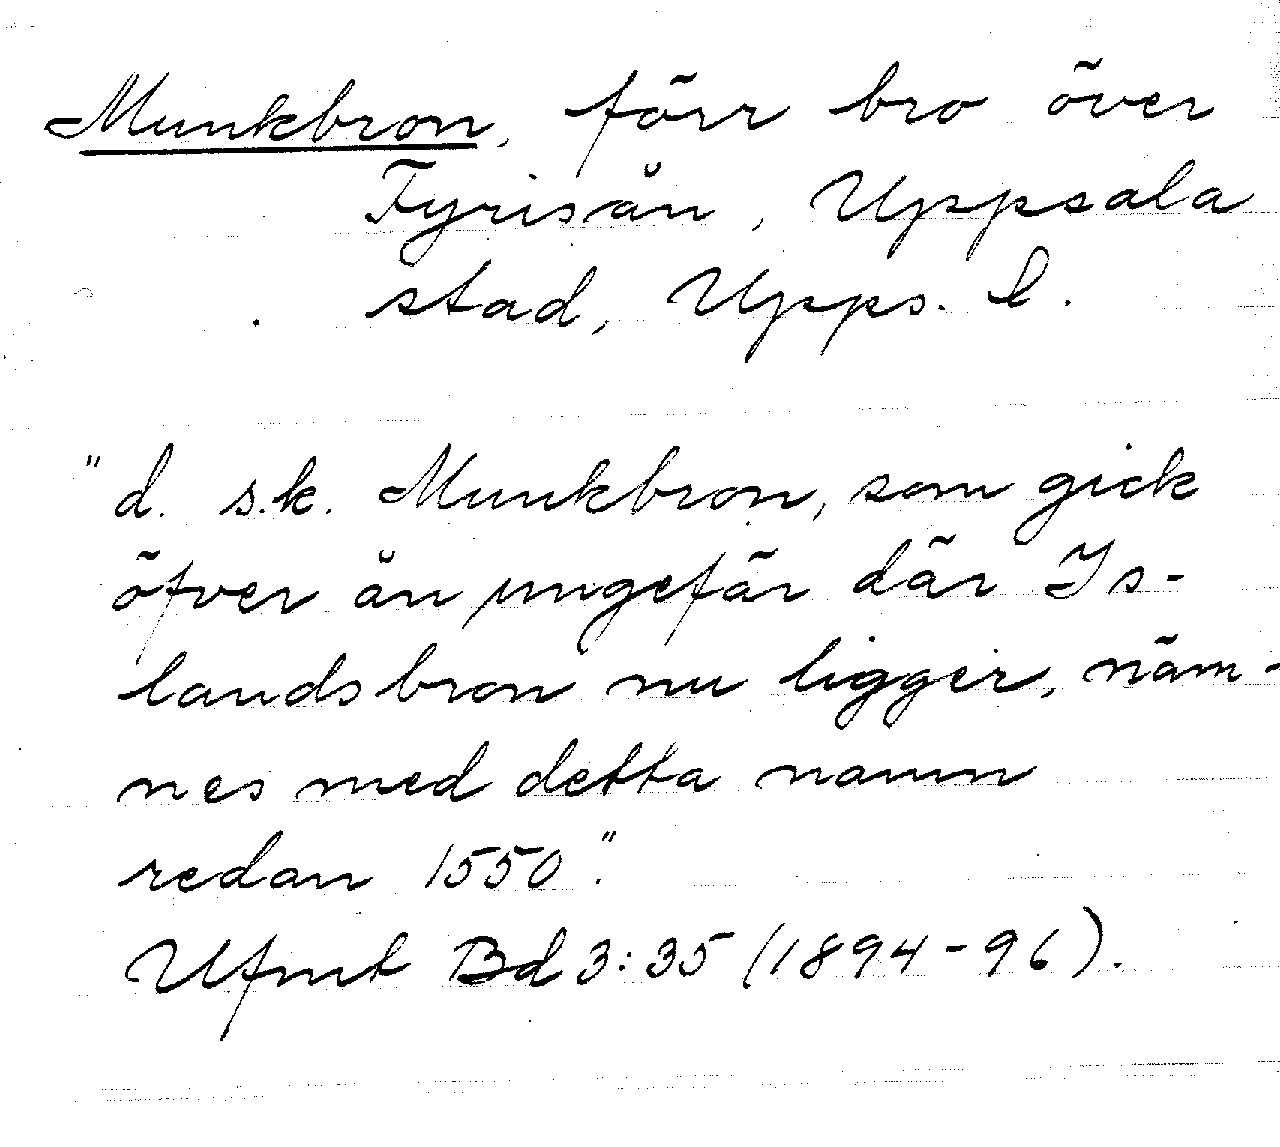 Munkbron, förr bro över
Fyrisån, Uppsala
stad, Upps. l.
"d. s.k. Munkbron, som gick
öfver ån ungefär där Is-
landsbron nu ligger, näm-
nes med detta namn
redan 1550".
Ufmt Bd 3:35 (1894-96).